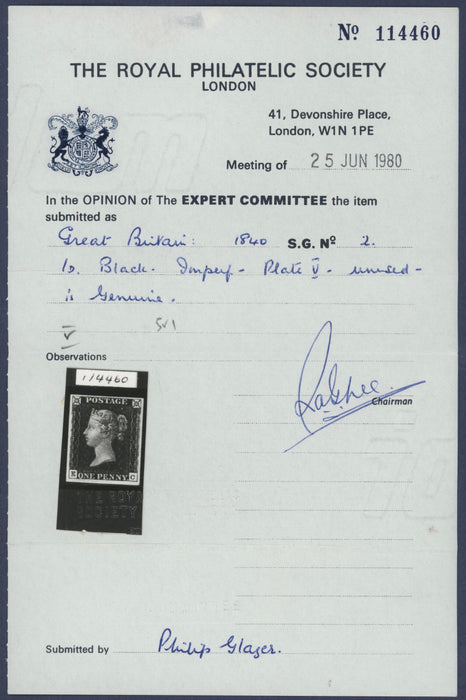 Nº 114460
THE ROYAL PHILATELIC SOCIETY
LONDON
41, Devonshire Place,
London, W1N 1PE
Meeting of 25 JUN 1980
In the OPINION of The EXPERT COMMITTEE the item
submitted as
Great Britain: 1840 S.G. Nº 2.
1d. Black. Imperf - Plate V - unused -
is Genuine.
V
Observations
114460
POSTAGE
ONE PENNY
THE ROYA
SOCIETY
Chairman
LONDON
Submitted by Philip Glazer.